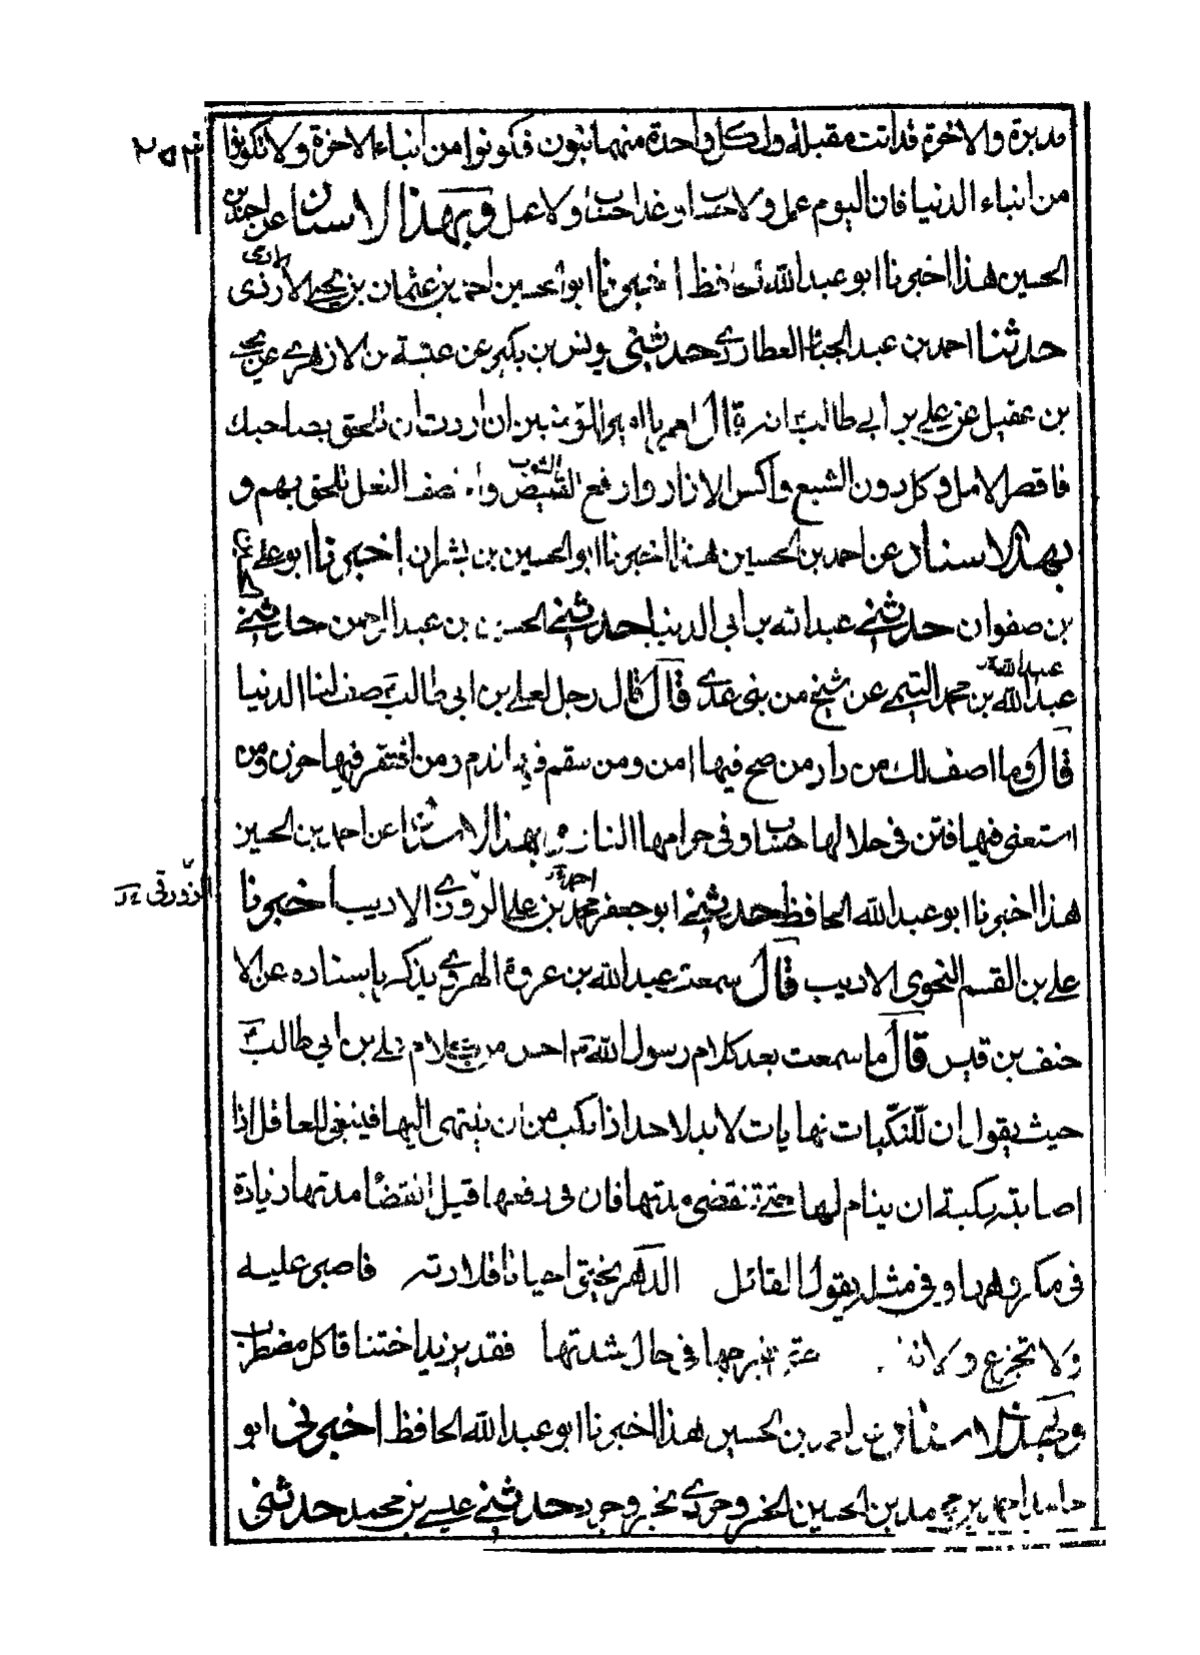 مدبرة والاخرة قد اتت مقبلة ولكل واحدة منهما بنون فكونوا من ابناء الاخرة ولا تكونوا
٢٥٣
من ابناء الدنيا فان اليوم عمل ولا حساب وان غدا حساب ولا عمل وبهذا الاسناد عن احمد بن
الحسين هذا اخبرنا ابو عبد الله الحافظ اخبرنا ابو الحسين احمد بن عثمان بن يحيى الادمي
حدثنا احمد بن عبد الجبار العطاردي حدثني يونس بن بكير عن عتبة بن الازهر عن يحيى
بن عقيل عن علي بن ابي طالب انه قال لعمر يا امير المؤمنين ان اردت ان تلحق بصاحبك
فاقصر الامل وكل دون الشبع واكس الازار وارفع القميص واخصف النعل تلحق بهم و
الثوب
بهذا الاسناد عن احمد بن الحسين هذا اخبرنا ابو الحسين بن بشران اخبرنا ابو علي
بن صفوان حدثني عبد الله بن ابي الدنيا حدثني الحسين بن عبد الرحمن حدثني
عبد الله بن محمد التيمي عن شيخ من بني عدي قال قال رجل لعلي بن ابي طالب صف لنا الدنيا
قال وما اصف لك من دار من صح فيها امن ومن سقم فيها ندم ومن افتقر فيها حزن ومن
استغنى فيها فتن في حلالها حساب وفي حرامها النار وبهذا الاسناد عن احمد بن الحسين
هذا اخبرنا ابو عبد الله الحافظ حدثني ابو جعفر محمد بن علي الزوزني الاديب اخبرنا
علي بن القسم النحوي الاديب قال سمعت عبد الله بن عروة الهروي يذكر باسناده عن الا
حنف بن قيس قال ما سمعت بعد كلام رسول الله احسن من كلام علي بن ابي طالب
حيث يقول ان للنكبات نهايات لا بد لاحد اذا نكب من ان ينتهي اليها فينبغي للعاقل اذا
اصابته نكبة ان ينام لها حتى تنقضي مدتها فان في دفعها قبل انقضاء مدتها زيادة
في مكروهها وفي مثل يقول القائل الدهر يخنق احيانا قلادته فاصبر عليه
ولا تجزع ولا تثب حتى يفرجها في حال شدتها فقد يزيد اختناقا كل مضطرب
وبهذا الاسناد عن احمد بن الحسين هذا اخبرنا ابو عبد الله الحافظ اخبرني ابو
حامد احمد بن محمد بن الحسين الخسروجردي بخسروجرد حدثني عيسى بن محمد حدثني